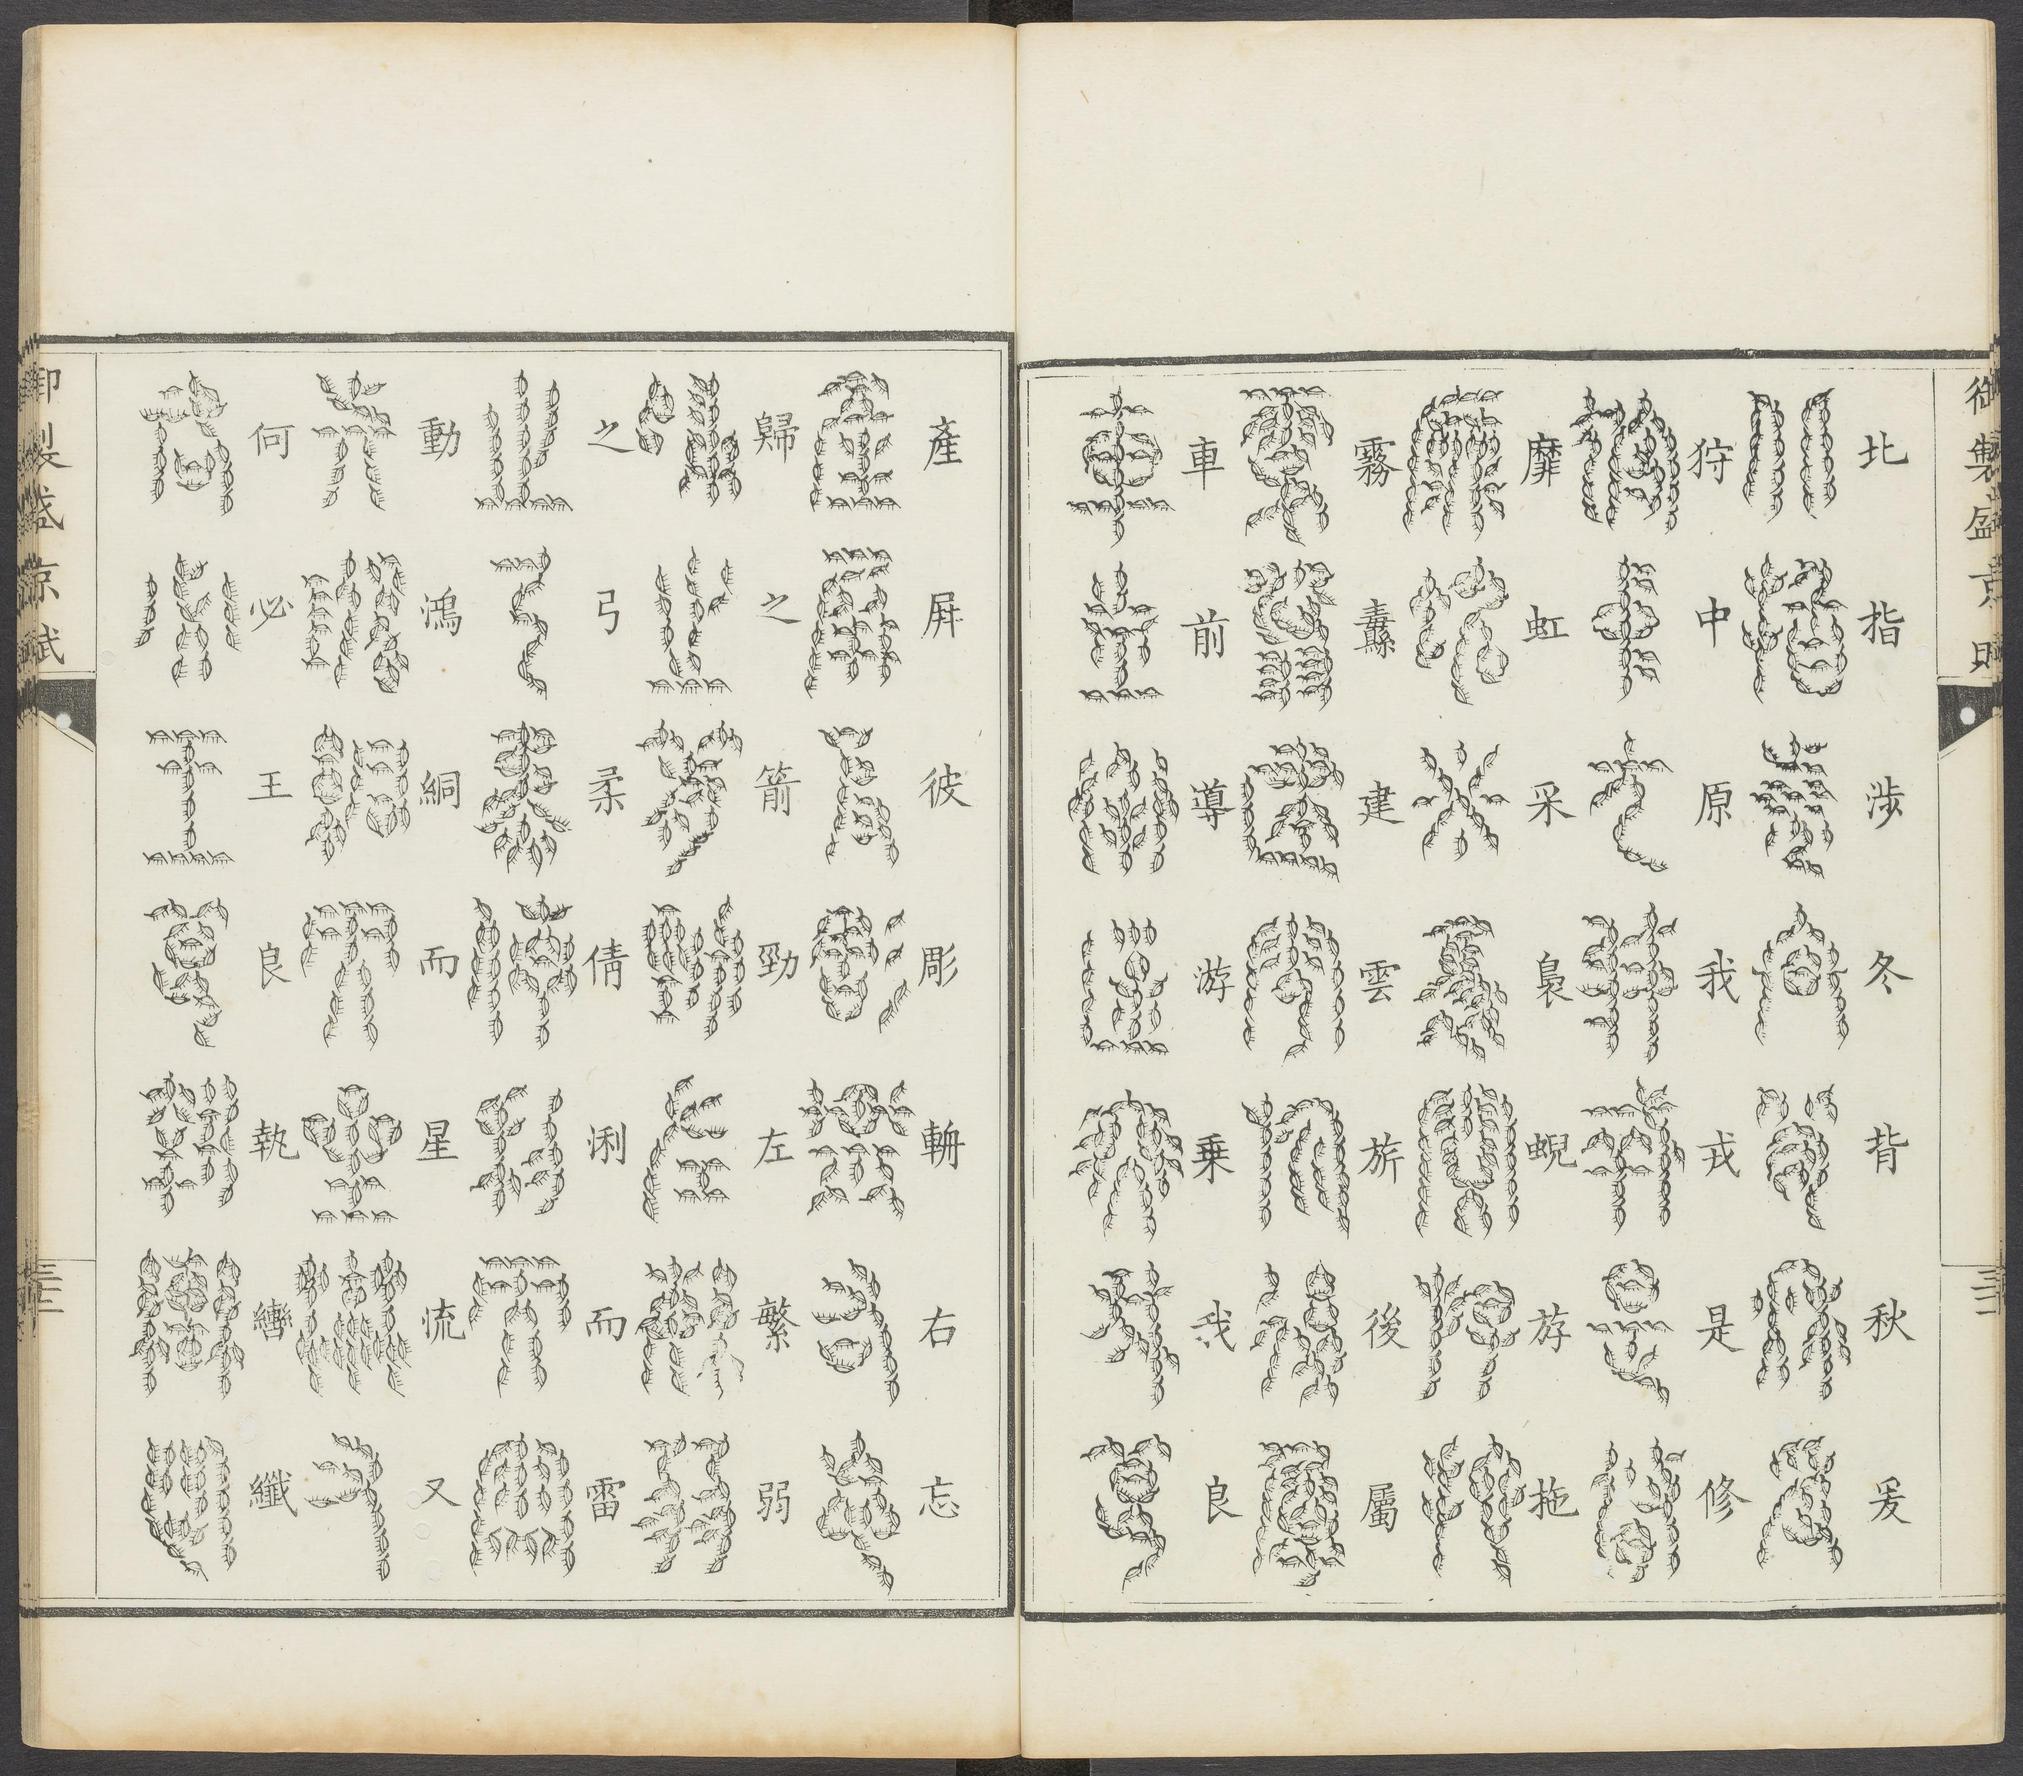 御製盛京賦
北指涉冬背秋爰
狩中原我戎是修
靡虹采裊蜺斿拖
霧纛建雲旂後屬
車前導游乗我良
産屏彼彫輈右忘
歸之箭勁左繁弱
之弓柔倩悧而雷
動鴻絅而星流又
何必王良執轡纖
御製盛京賦